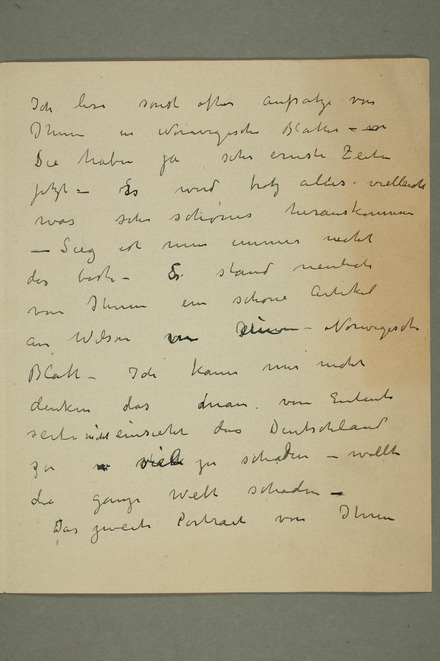 Ich lese sonst ofter aufsatze von
Ihnen in Norwegische Blatter –
Die haben ja sehr ernste Zeiten
jetzt – Es wird trotz alles vielleicht
was sehr schönes herauskommen
– Sieg ist nun immer nicht
das beste – Es stand neulich
von Ihnen ein schöne Artikel
an Wilson Norwegische
Blatt – Ich kann mir nicht
denken das man von Entente
seite nicht einsieht das Deutschland
zu viel zu schaden – wollte
die ganze Welt schaden –
Das zweite Portrait von Ihnen